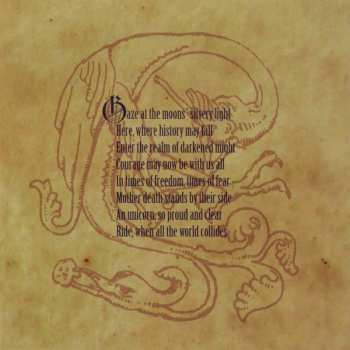 Gaze at the moons' silvery light
Here, where history may fall
Enter the realm of darkened might
Courage may now be with us all
In times of freedom, times of fear
Mother death stands by their side
An unicorn, so proud and clear
Ride, when all the world collides